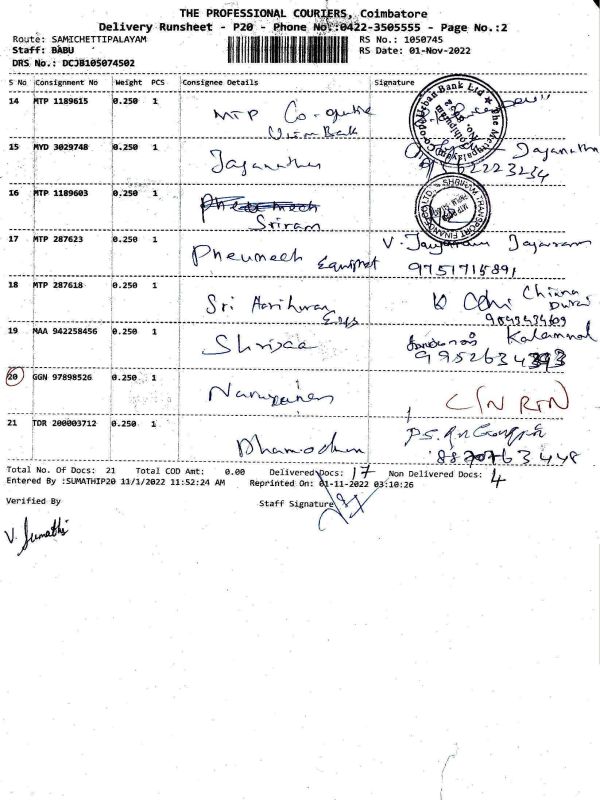 THE PROFESSIONAL COURIERS, Coimbatore
Delivery Runsheet - P20 - Phone No.:0422-3505555 - Page No.:2
Route: SAMICHETTIPALAYAM RS No.: 1050745
Staff: BABU RS Date: 01-Nov-2022
DRS No.: DCJB105074502
S No Consignment No Weight PCS Consignee Details Signature
14 MTP 1189615 0.250 1 MTP Co-optive
Bank
15 MYD 3029748 0.250 1 Jaganathan Jayanathn
62223234
16 MTP 1189603 0.250 1
Sriram
17 MTP 287623 0.250 1 Pneumech Equipmet V. Jayaram Jayaram
9751715891
18 MTP 287618 0.250 1 Sri Harihuran Chinna
Durai
19 MAA 942258456 0.250 1 Shrisaa
20 GGN 97898526 0.250 1 Narayanan C/N RTN
21 TDR 200003712 0.250 1 Dhamodhun
Total No. Of Docs: 21 Total COD Amt: 0.00 Delivered Docs: 17 Non Delivered Docs: 4
Entered By :SUMATHIP20 11/1/2022 11:52:24 AM Reprinted On: 01-11-2022 03:10:26
Verified By Staff Signature
V. Sumathi